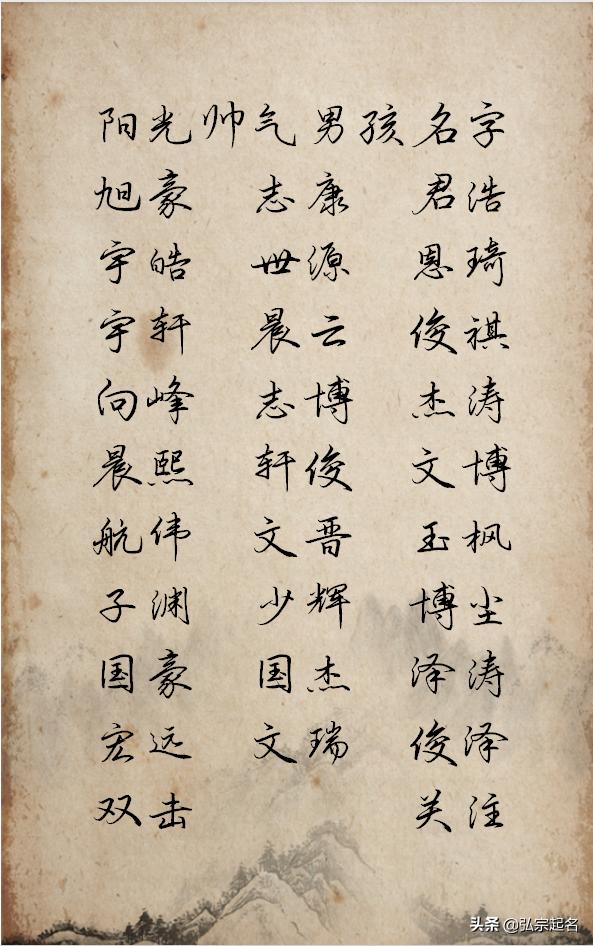 阳光帅气男孩名字
旭豪 志康 君浩
宇皓 世源 恩琦
宇轩 晨云 俊祺
向峰 志博 杰涛
晨熙 轩俊 文博
航伟 文晋 玉枫
子渊 少辉 博尘
国豪 国杰 泽涛
宏远 文瑞 俊泽
双击 关注
头条 @弘宗起名